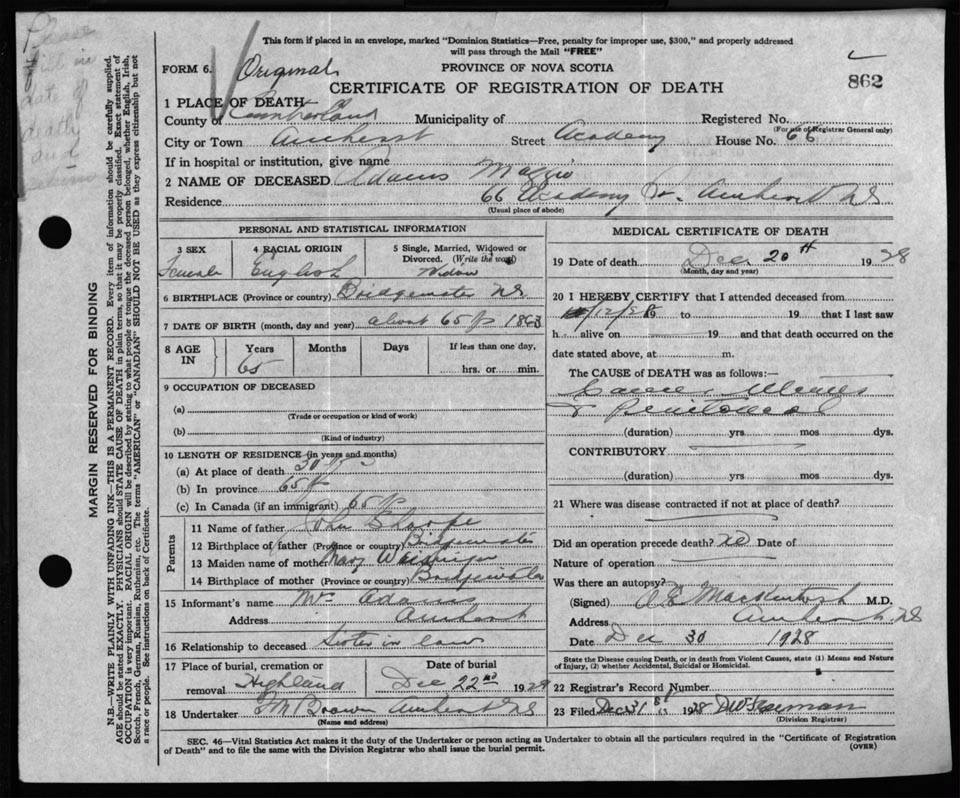 This form if placed in an envelope, marked "Dominion Statistics—Free, penalty for improper use, $300," and properly addressed
will pass through the Mail "FREE"
FORM 6. Original PROVINCE OF NOVA SCOTIA
862
CERTIFICATE OF REGISTRATION OF DEATH
1 PLACE OF DEATH
County of Cumberland Municipality of Registered No.
(For use of Registrar General only)
City or Town Amherst Street Academy House No. 66
If in hospital or institution, give name
2 NAME OF DECEASED Adams Maggie
Residence 66 Academy St. Amherst NS
(Usual place of abode)
PERSONAL AND STATISTICAL INFORMATION
3 SEX 4 RACIAL ORIGIN 5 Single, Married, Widowed or
Divorced. (Write the word)
Female English Widow
6 BIRTHPLACE (Province or country) Bridgewater NS.
7 DATE OF BIRTH (month, day and year) about 65 1863
8 AGE IN Years Months Days If less than one day,
65 hrs. or min.
9 OCCUPATION OF DECEASED
(a)
(Trade or occupation or kind of work)
(b)
(Kind of industry)
10 LENGTH OF RESIDENCE (in years and months)
(a) At place of death 30
(b) In province 65
(c) In Canada (if an immigrant) 65
Parents
11 Name of father John
12 Birthplace of father (Province or country) Bridgewater
13 Maiden name of mother Mary
14 Birthplace of mother (Province or country) Bridgewater
15 Informant's name Adams
Address Amherst
16 Relationship to deceased Sister in law
17 Place of burial, cremation or Date of burial
removal Highland Dec 22nd 1928
18 Undertaker Brown Amherst NS
(Name and address)
MEDICAL CERTIFICATE OF DEATH
19 Date of death Dec 20th 1928
(Month, day and year)
20 I HEREBY CERTIFY that I attended deceased from
/12/28 19 to 19 that I last saw
h alive on 19 and that death occurred on the
date stated above, at m.
The CAUSE of DEATH was as follows:—
Cancer, Uterus
&
(duration) yrs mos dys.
CONTRIBUTORY
(duration) yrs mos dys.
21 Where was disease contracted if not at place of death?
Did an operation precede death? no Date of
Nature of operation
Was there an autopsy?
(Signed) Mackintosh M.D.
Address Amherst NS
Date Dec 30 1928
State the Disease causing Death, or in death from Violent Causes, state (1) Means and Nature
of Injury, (2) whether Accidental, Suicidal or Homicidal.
22 Registrar's Record Number
23 Filed Dec 31st 1928
(Division Registrar)
SEC. 46—Vital Statistics Act makes it the duty of the Undertaker or person acting as Undertaker to obtain all the particulars required in the "Certificate of Registration
of Death" and to file the same with the Division Registrar who shall issue the burial permit. (OVER)
MARGIN RESERVED FOR BINDING
N.B.—WRITE PLAINLY WITH UNFADING INK—THIS IS A PERMANENT RECORD. Every item of information should be carefully supplied.
AGE should be stated EXACTLY. PHYSICIANS should STATE CAUSE OF DEATH in plain terms, so that it may be properly classified. Exact statement of
OCCUPATION is very important. RACIAL ORIGIN will be described by stating to what people or tongue the deceased person belonged, whether English, Irish,
Scotch, French, German, Russian, Ruthenian, etc. The terms "AMERICAN" or "CANADIAN" SHOULD NOT BE USED as they express citizenship but not
a race or people. See instructions on back of Certificate.
Please
in
date of
death
and